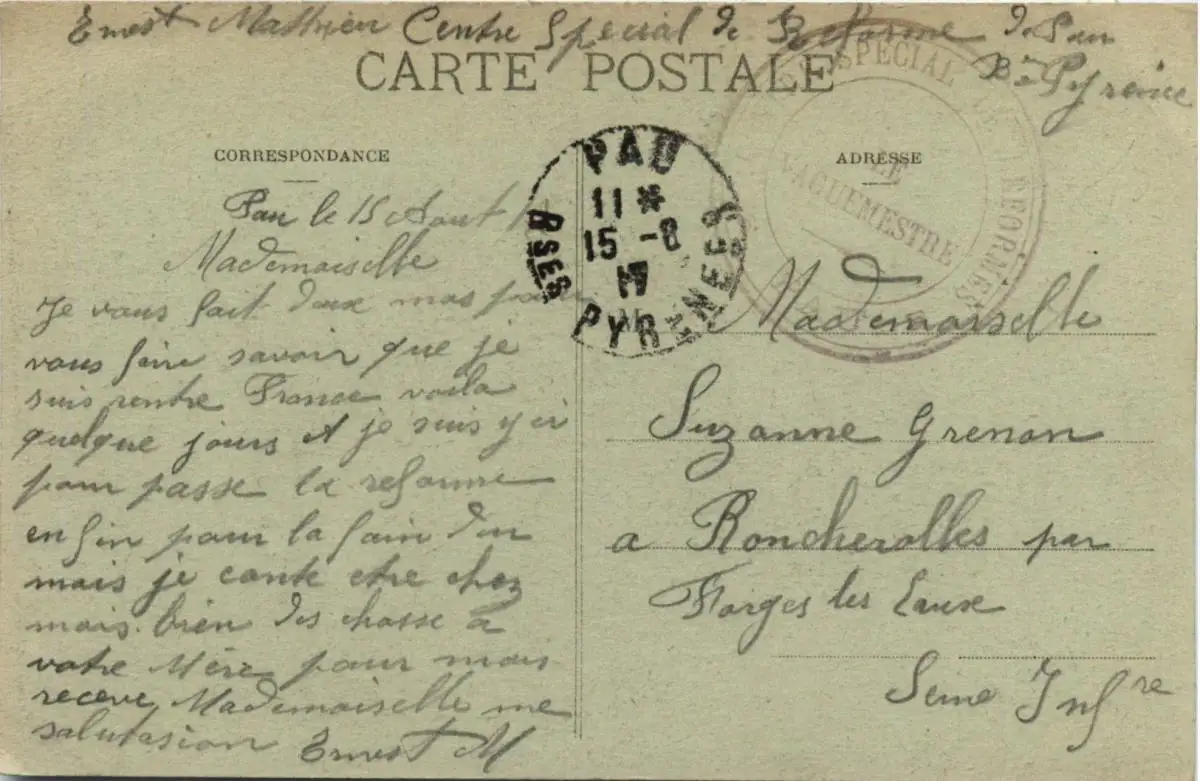 Ernest Mathieu Centre Special de Reforme de Pau
Bses Pyrénée
CARTE POSTALE
SPECIAL DE REFORMES
LE
VAGUEMESTRE
CORRESPONDANCE
ADRESSE
PAU
11 *
15 -8
17
BSES PYRÉNÉES
Pau le 15 Aout
Mademoiselle
Je vous fait deux mos pour
vous faire savoir que je
suis rentre France voila
quelque jours et je suis y ci
pour passe la reforme
enfin pour la fain du
mais je conte etre chez
mais bien des chosse a
votre Mère pour mais
receve Mademoiselle me
salutasion Ernest M
Mademoiselle
Suzanne Grenon
a Roncherolles par
Forges les Eaux
Seine Infre